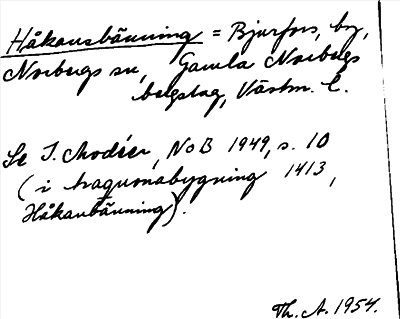 Håkansbänning = Bjurfors, by,
Norbergs sn, Gamla Norbergs
bergslag, Västm. l.
Se I. Modéer, NoB 1949, s. 10
(i haquonabygning 1413,
Håkanbänning).
Th. A. 1954.